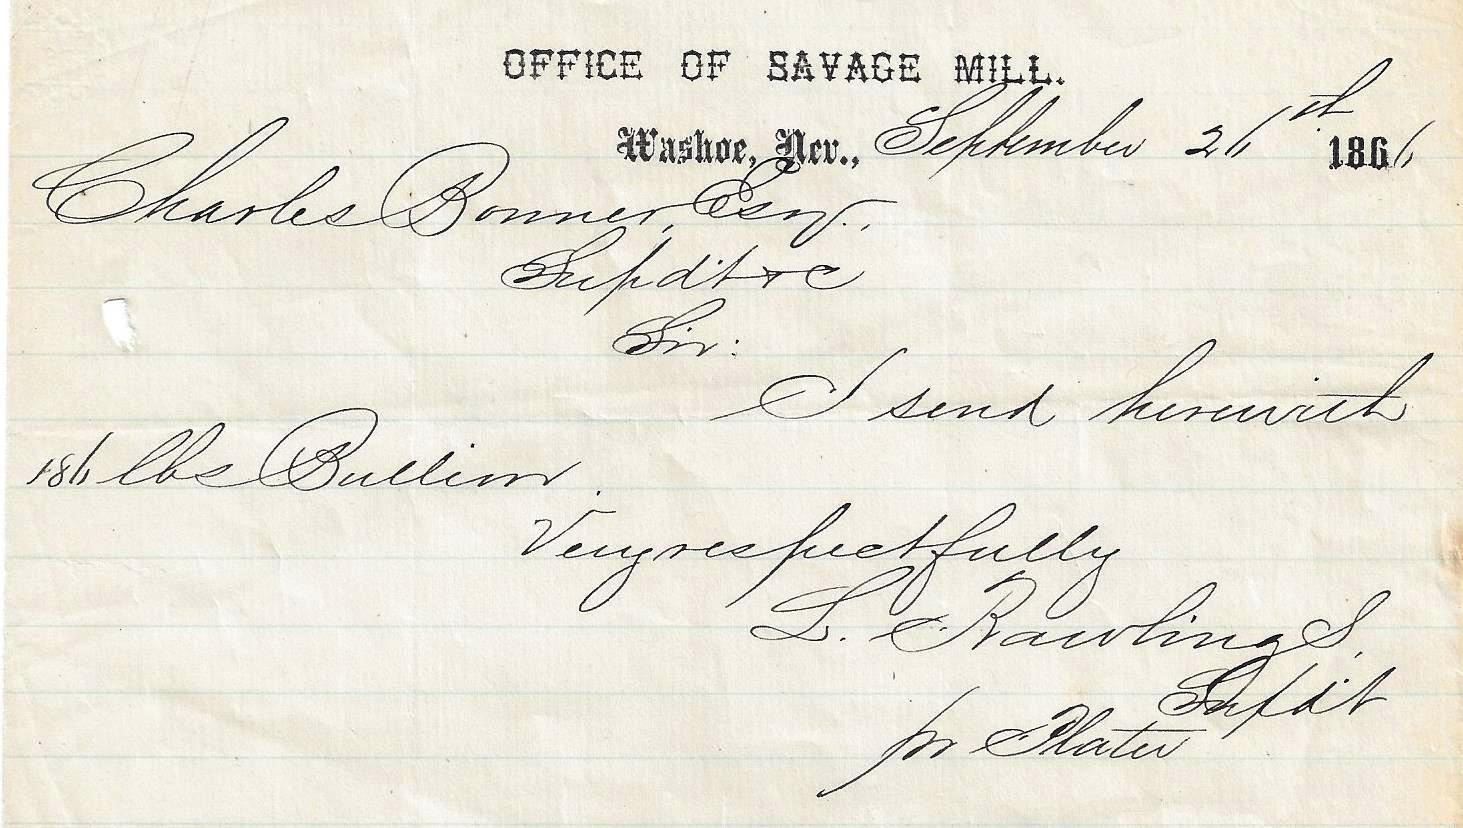 OFFICE OF SAVAGE MILL.
Washoe, Nev., September 26th 1866
Charles Bonner, Esqr.,
Supdt & c
Sir:
I send herewith
186 lbs Bullion.
Very respectfully
L. Rawlings,
Supdt
pr Plater